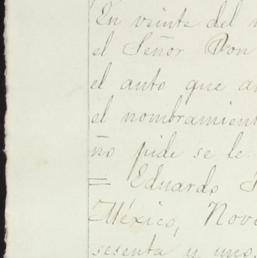 En veinte del
el Señor Don
el auto que a
el nombramient
ño pide se le
= Eduardo
México, Nove
sesenta y uno